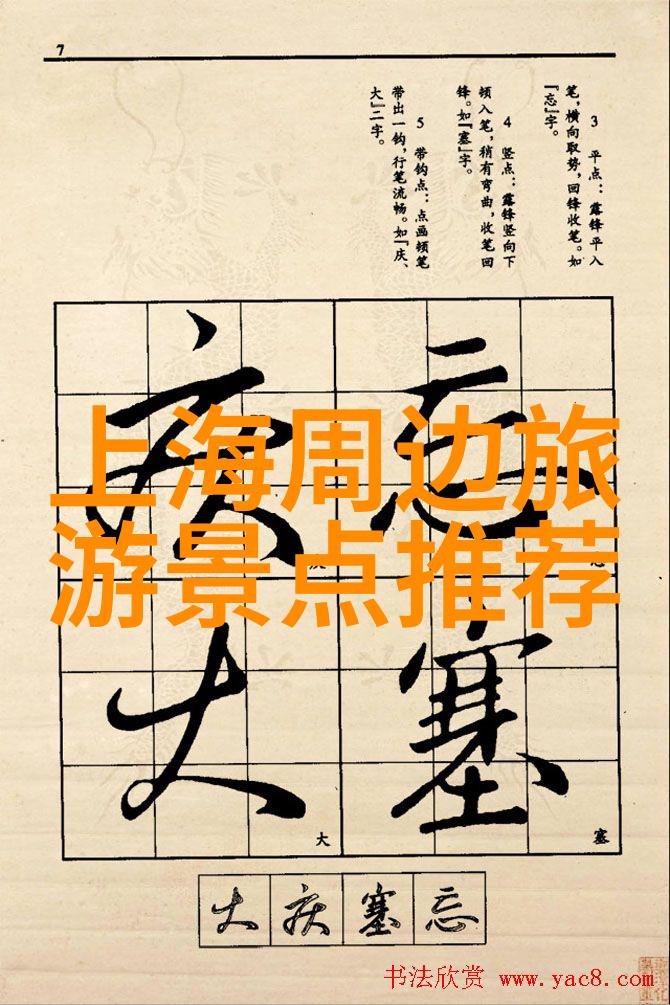 7
3 平点：露锋平入
笔，横向取势，回锋收笔。如
『忘』字。
4 竖点：露锋竖向下
顿入笔，稍有弯曲，收笔回
锋。如『塞』字。
5 带钩点：点画顿笔
带出一钩，行笔流畅。如『庆、
大』二字。
忘
塞
塞
庆
大
大
上海周边旅
游景点推荐
忘塞庆大
书法欣赏 www.yac8.com